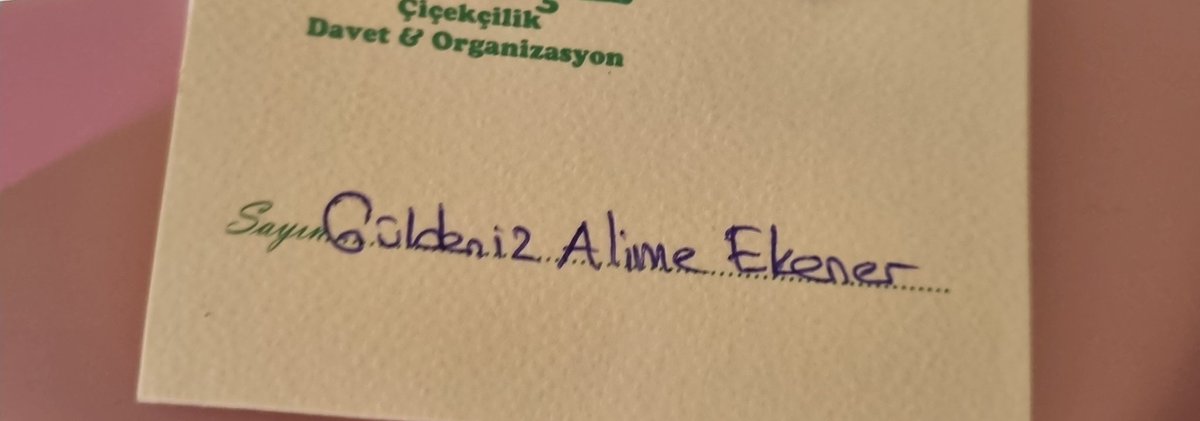 Çiçekçilik
Davet & Organizasyon
Sayın Güldeniz Alime Ekener